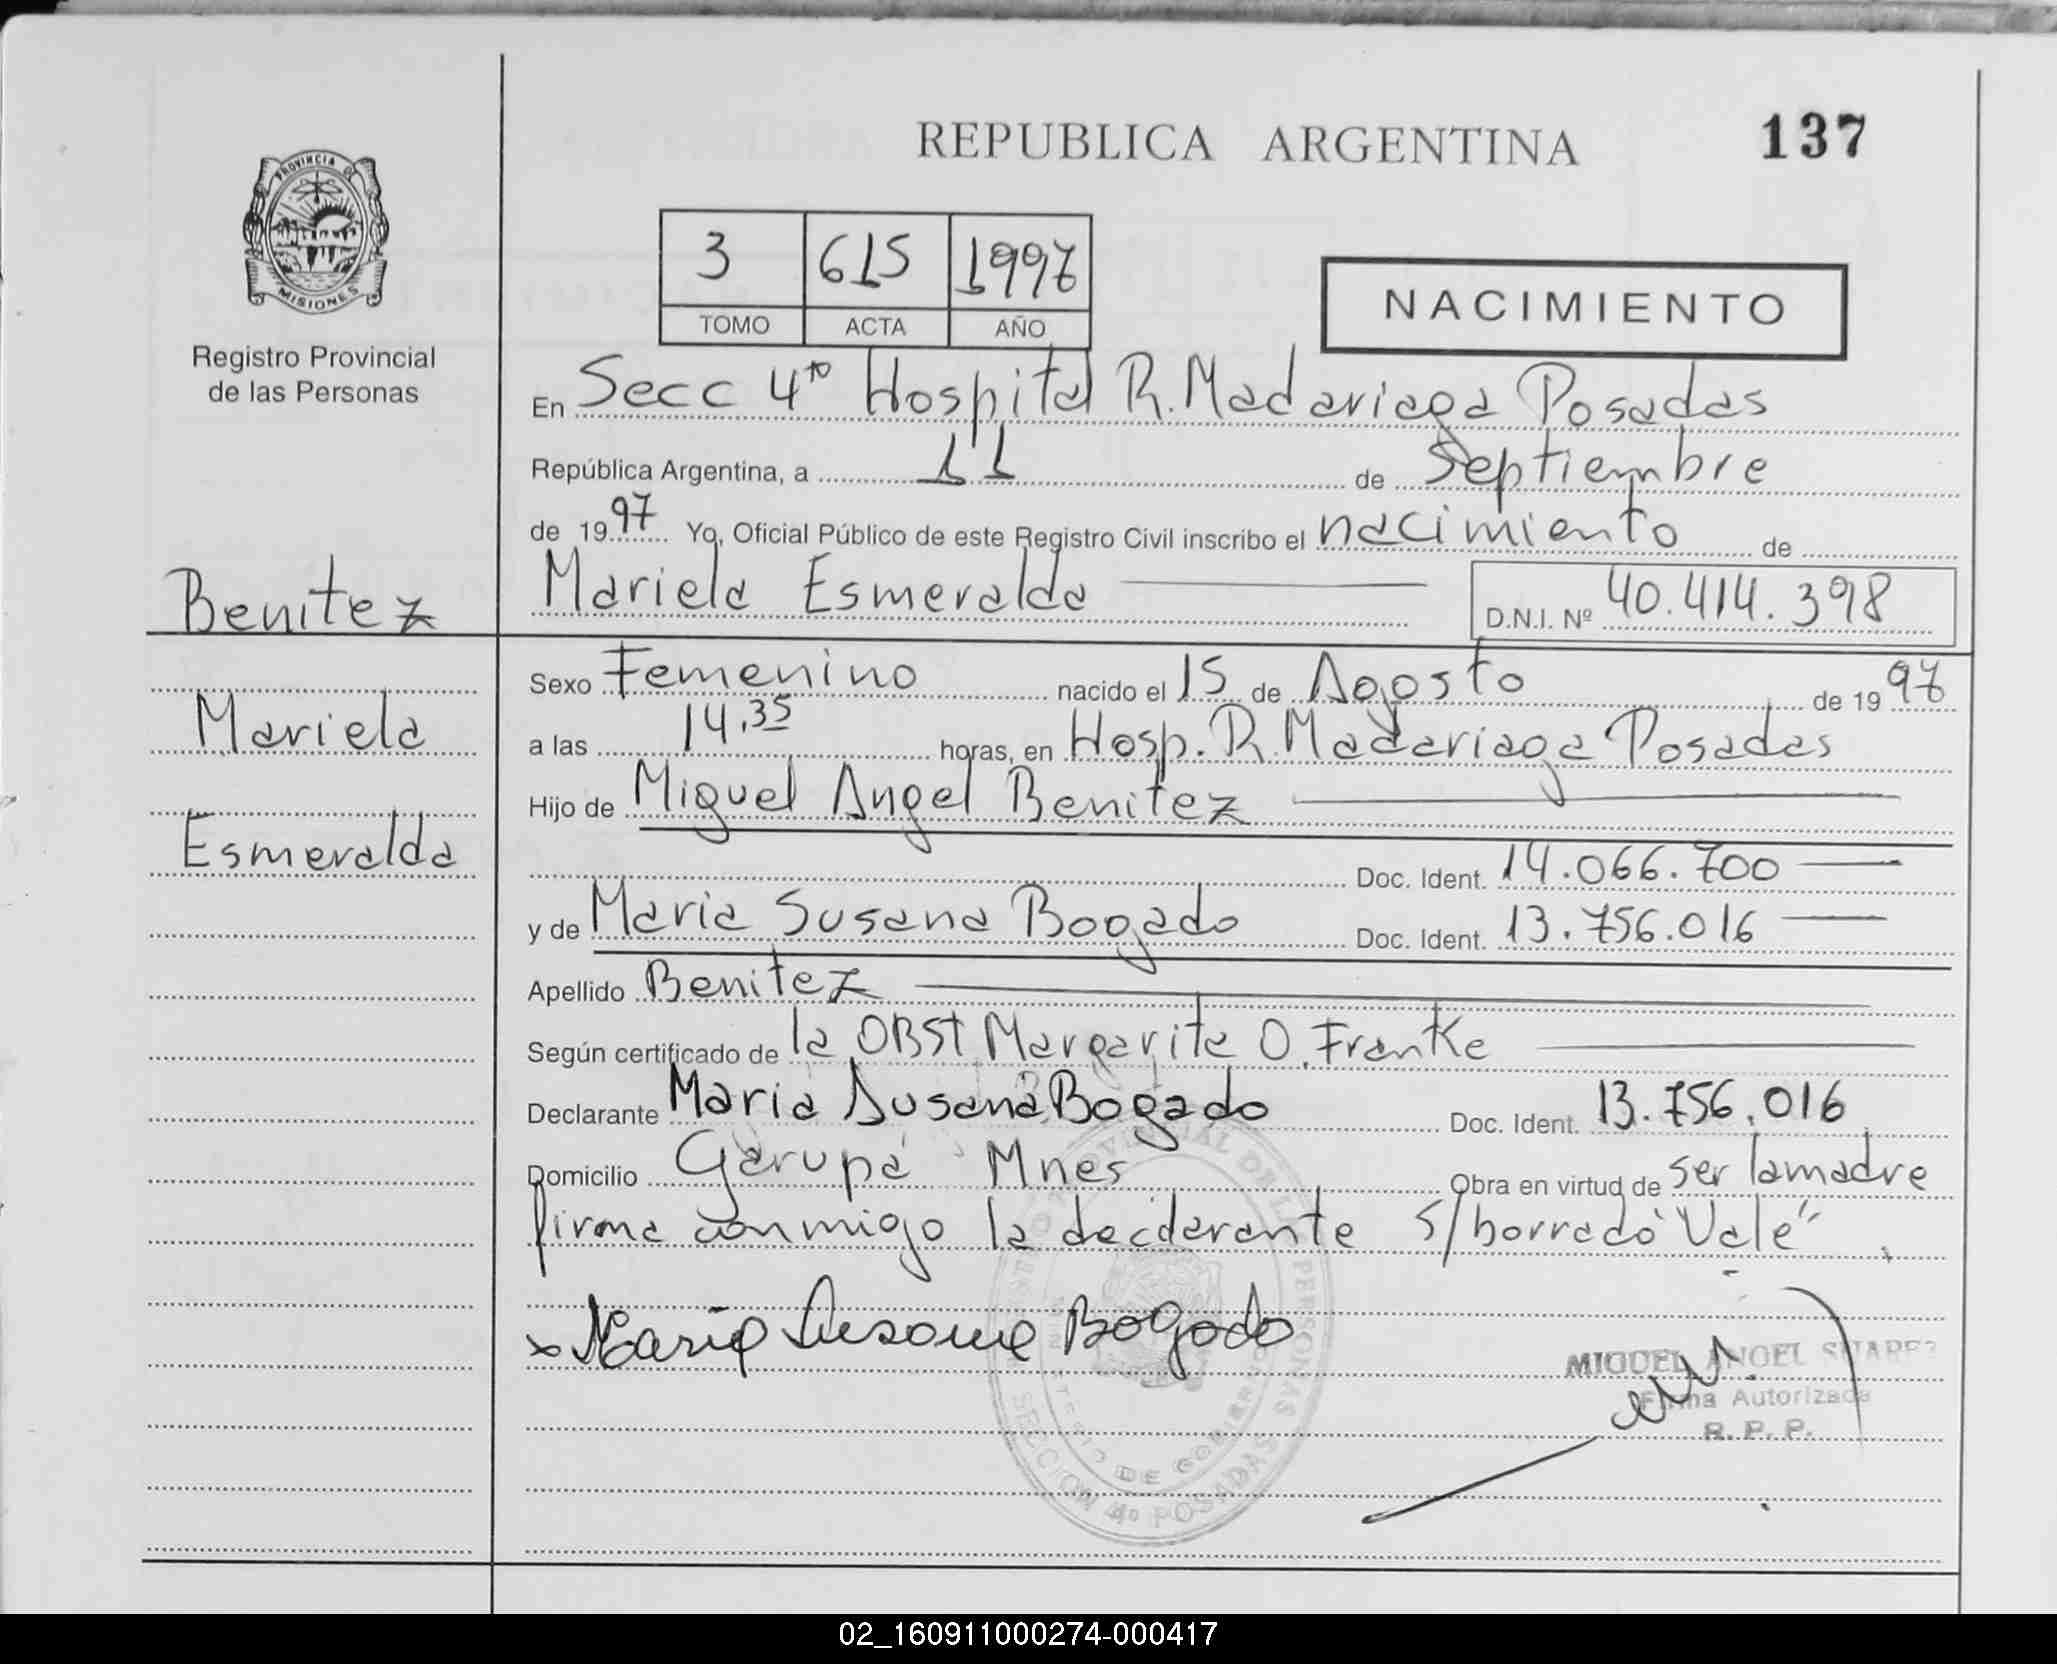 REPUBLICA ARGENTINA 137
PROVINCIA
MISIONES
Registro Provincial
de las Personas
3 615 1997
TOMO ACTA AÑO
NACIMIENTO
En Secc 4to Hospital R. Madariaga Posadas
República Argentina, a 11 de Septiembre
de 1997 Yo, Oficial Público de este Registro Civil inscribo el nacimiento de
Mariela Esmeralda D.N.I. Nº 40.414.398
Benitez
Mariela
Esmeralda
Sexo Femenino nacido el 15 de Agosto de 1997
a las 14,35 horas, en Hosp. R. Madariaga Posadas
Hijo de Miguel Angel Benitez
Doc. Ident. 14.066.700
y de Maria Susana Bogado Doc. Ident. 13.756.016
Apellido Benitez
Según certificado de la OBST Margarita O. Franke
Declarante Maria Susana Bogado Doc. Ident. 13.756.016
Domicilio Garupá Mnes Obra en virtud de ser la madre
firma conmigo la declarante S/borrado "Vale"
x Maria Susana Bogado
MIGUEL ANGEL SUAREZ
Firma Autorizada
R. P. P.
DE LAS PERSONAS
SECCION 4º POSADAS
02_160911000274-000417